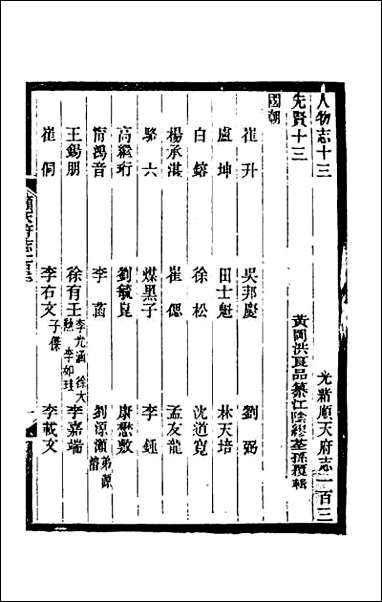 人物志十三 光緒順天府志一百三
先賢十三 黃岡洪良品纂江陰繆荃孫覆輯
國朝
崔升 吳邦慶 劉弼
盧坤 田士魁 林天培
白鎔 徐松 沈道寬
楊承湛 崔偲 孟友龍
駱六 煤黑子 李鍾
高繼珩 劉毓崑 康懋敷
甯鴻音 李菡 劉源灝 弟源濬
王錫朋 徐有壬 李九涵 徐大 李如琪 李嘉端
崔侗 李右文 子傑 李載文
順天府志